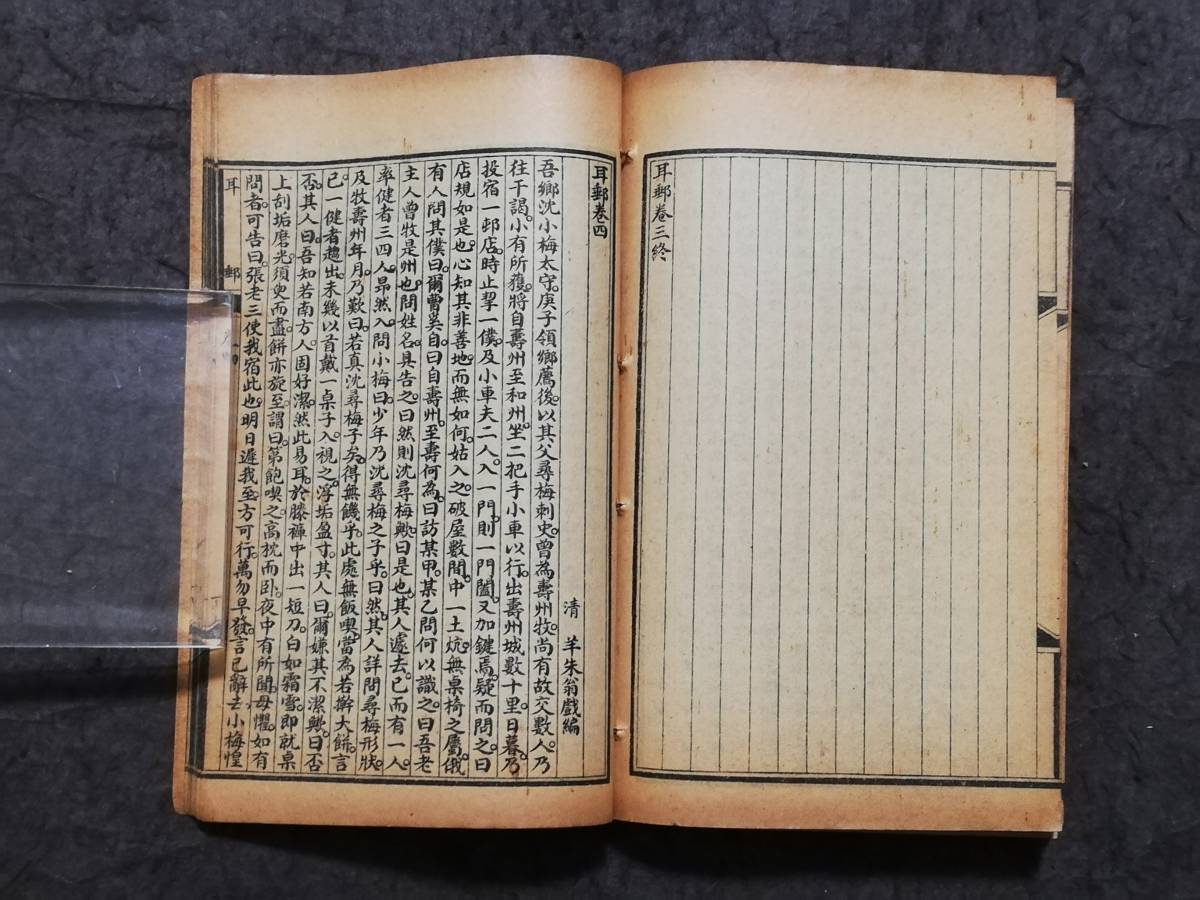 耳郵卷三終
耳郵卷四
清　羊朱翁戲編
吾鄉沈小梅太守。庚子領鄉薦後。以其父尋梅刺史。曾為壽州牧。尚有故交數人。乃
往干謁。小有所獲。將自壽州至和州。坐二把手小車以行。出壽州城數十里。日暮。乃
投宿一邨店。時止挈一僕。及小車夫二人。入一門。則一門闔。又加鍵焉。疑而問之。曰
店規如是也。心知其非善地。而無如何。姑入之。破屋數間。中一土炕。無桌椅之屬。俄
有人問其僕曰。爾曹奚自。曰自壽州。至壽何為。曰訪某甲。某乙問何以識之。曰吾老
主人曾牧是州也。問姓名。具告之。曰然則沈尋梅歟。曰是也。其人遽去。已而有一人
率健者三四人。昂然入。問小梅曰。少年乃沈尋梅之子乎。曰然。其人詳問尋梅形狀。
及牧壽州年月。乃歎曰。若真沈尋梅子矣。得無饑乎。此處無飯喫。當為若擀大餅。言
已。一健者趨出。未幾以首戴一桌子入。視之。浮垢盈寸。其人曰。爾嫌其不潔歟。曰否
否。其人曰。吾知若南方人。固好潔。然此易耳。於膝褲中出一短刀。白如霜雪。即就桌
上刮垢磨光。須臾而盡。餅亦旋至。謂曰。第飽喫之。高枕而卧。夜中有所聞。毋懼。如有
問者。可告曰。張老三使我宿此也。明日遲我至。方可行。萬勿早發。言已辭去。小梅惶
耳　郵